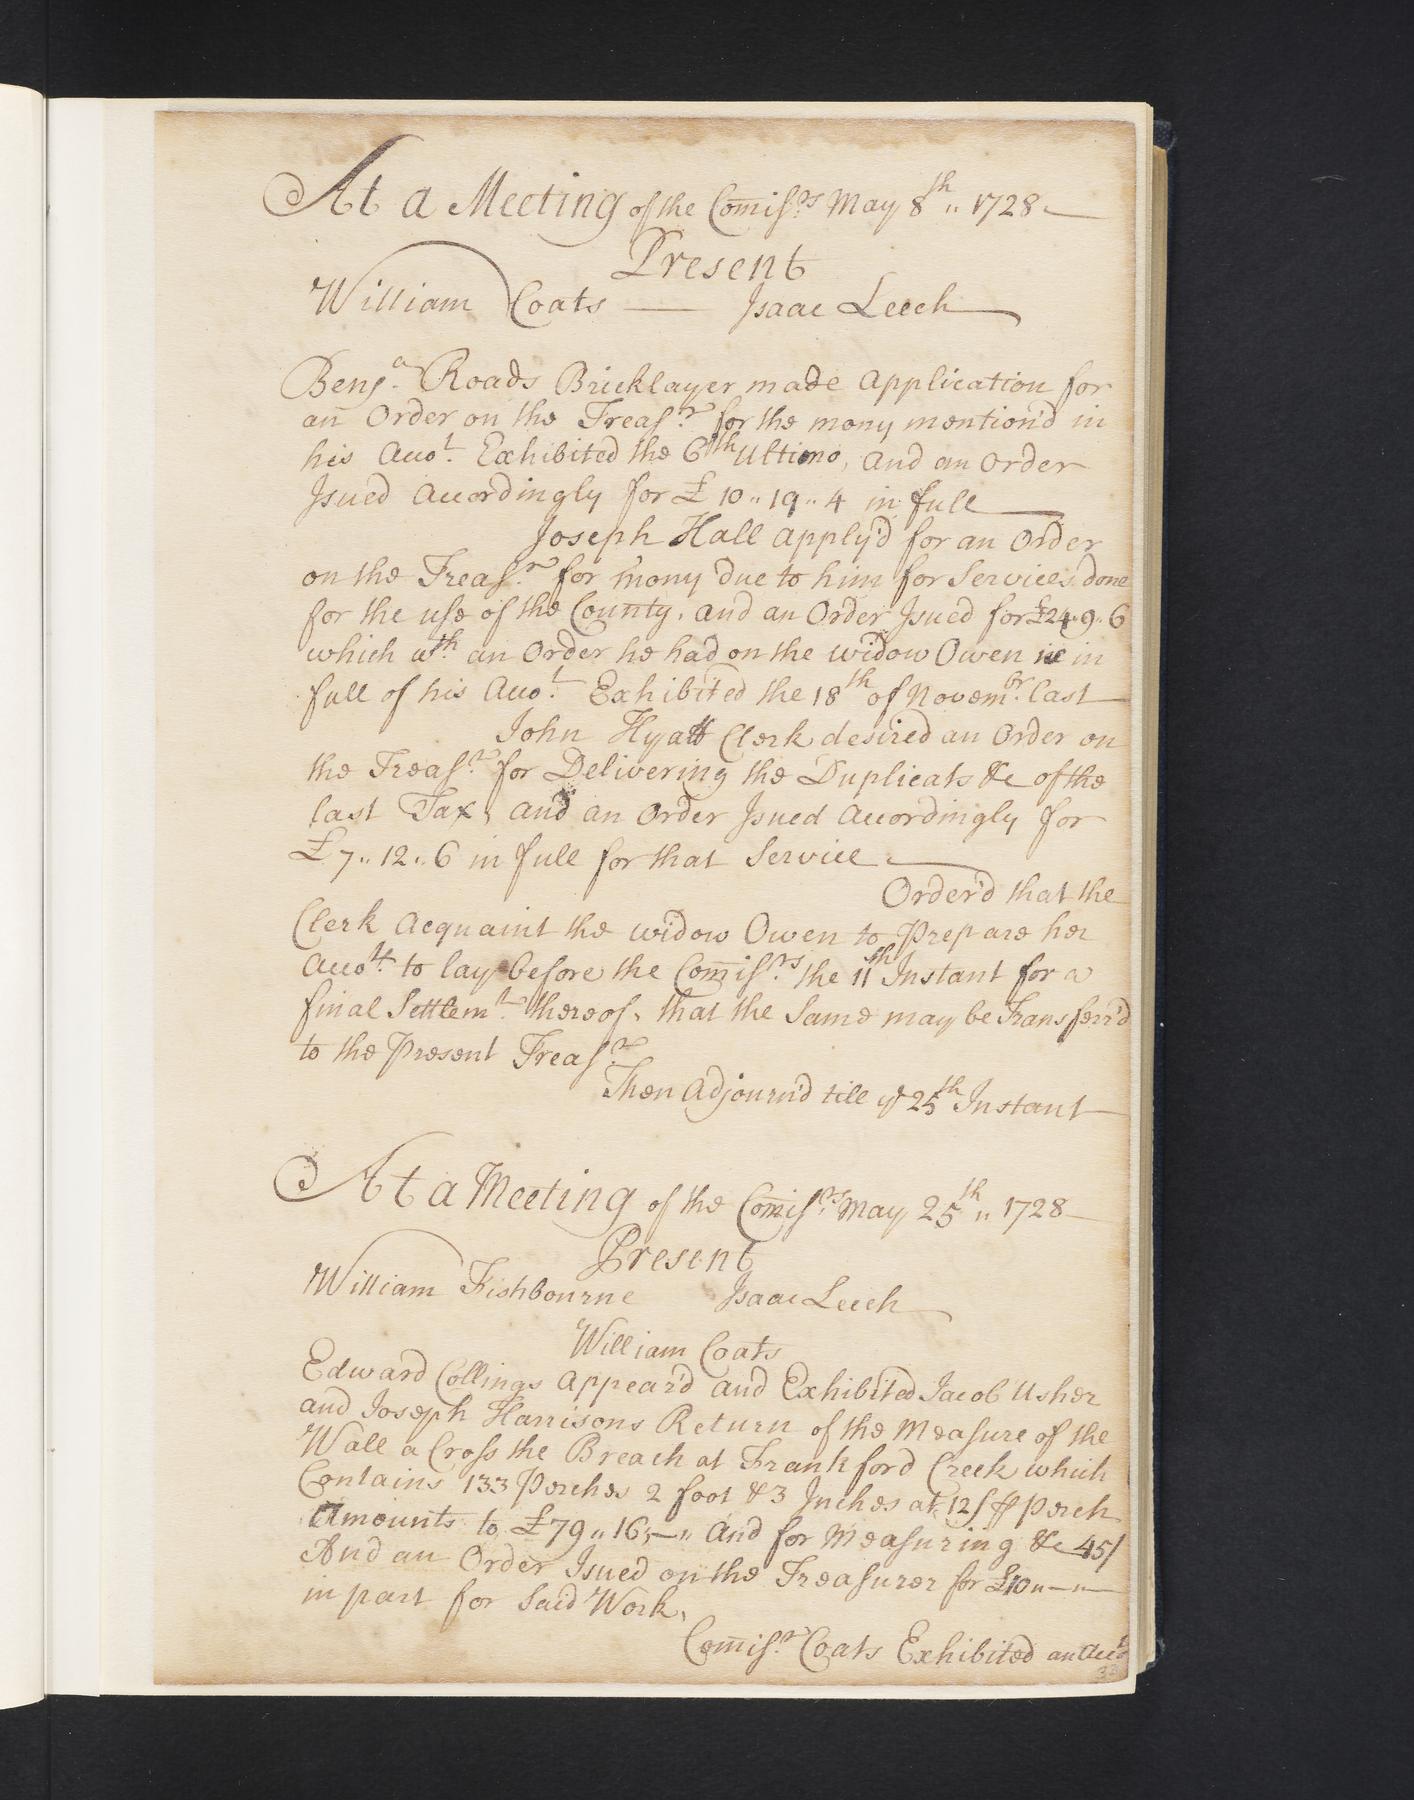 At a Meeting of the Com̄iss.rs May 8th,, 1728
Present
William Coats — Isaac Leech
Benj.a Roads Bricklayer made Application for
an Order on the Treas.r for the mony mention'd in
his Acco.t Exhibited the 6th Ultimo, and an Order
Isued Accordingly for £ 10,, 19,, 4 in full
Joseph Hall apply'd for an Order
on the Treas.r for mony due to him for Services done
for the use of the County, and an Order Isued for £24,,9,,6
which wth an Order he had on the widow Owen is in
full of his Acco.t Exhibited the 18th of Novem.br last
John Hyatt Clerk desired an Order on
the Treas.r for Delivering the Duplicats &c of the
last Tax, and an Order Isued Accordingly for
£ 7,, 12,, 6 in full for that Service
Order'd that the
Clerk Acquaint the widow Owen to Prepare her
Acco.tt to lay before the Com̄iss.rs the 11th Instant for a
final Settlem.t thereof, that the Same may be Transferr'd
to the Present Treas.r
Then Adjourn'd till ye 25th Instant
At a Meeting of the Com̄iss.rs May 25th,, 1728
Present
William Fishbourne Isaac Leech
William Coats
Edward Collings Appear'd and Exhibited Jacob Usher
and Joseph Harrisons Return of the Measure of the
Wall a Cross the Breach at Frankford Creek which
Contains 133 Perches 2 foot & 3 Inches at 12/ ⅌ Perch
Amounts to £79,, 16,,—,, And for Measuring &c 45/
And an Order Isued on the Treasurer for £10,,—,,—
in part for Said Work,
Com̄iss.r Coats Exhibited an Acco.t